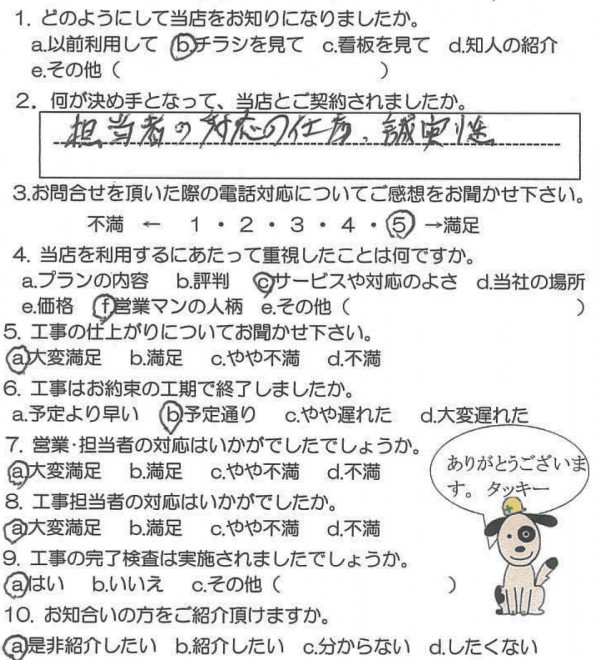 1. どのようにして当店をお知りになりましたか。
a.以前利用して b.チラシを見て c.看板を見て d.知人の紹介
e.その他（　　　　　）
2. 何が決め手となって、当店とご契約されましたか。
担当者の対応の仕方、誠実性
3.お問合せを頂いた際の電話対応についてご感想をお聞かせ下さい。
不満 ← 1・2・3・4・5 →満足
4. 当店を利用するにあたって重視したことは何ですか。
a.プランの内容 b.評判 c.サービスや対応のよさ d.当社の場所
e.価格 f.営業マンの人柄 e.その他（　　　　　）
5. 工事の仕上がりについてお聞かせ下さい。
a.大変満足 b.満足 c.やや不満 d.不満
6. 工事はお約束の工期で終了しましたか。
a.予定より早い b.予定通り c.やや遅れた d.大変遅れた
7. 営業・担当者の対応はいかがでしたでしょうか。
a.大変満足 b.満足 c.やや不満 d.不満
8. 工事担当者の対応はいかがでしたか。
a.大変満足 b.満足 c.やや不満 d.不満
9. 工事の完了検査は実施されましたでしょうか。
a.はい b.いいえ c.その他（　　　　　）
10. お知合いの方をご紹介頂けますか。
a.是非紹介したい b.紹介したい c.分からない d.したくない
ありがとうございま
す。タッキー